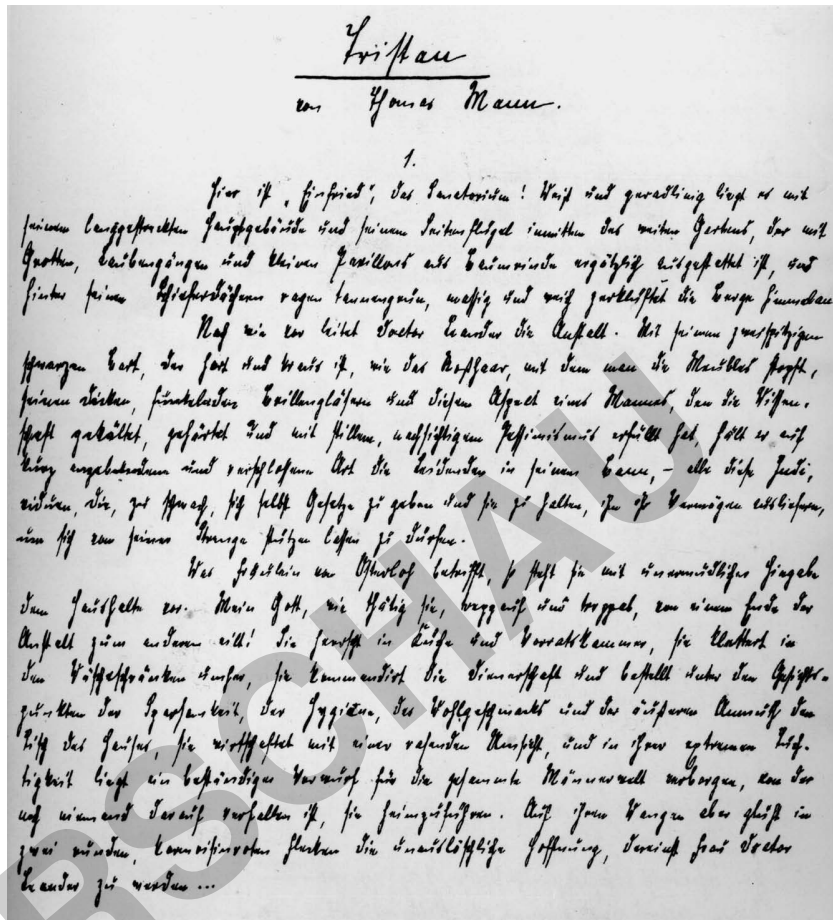 Tristan
von Thomas Mann.
1.
Hier ist „Einfried“, das Sanatorium! Weiß und geradlinig liegt es mit
seinem langgestreckten Hauptgebäude und seinem Seitenflügel inmitten des weiten Gartens, der mit
Grotten, Laubengängen und kleinen Pavillons aus Baumrinde ergötzlich ausgestattet ist, und
hinter seinen Schieferdächern ragen tannengrün, massig und weich zerklüftet die Berge himmelan
Nach wie vor leitet Doctor Leander die Anstalt. Mit seinem zweispitzigen
schwarzen Bart, der hart und kraus ist, wie das Roßhaar, mit dem man die Meubles stopft,
seinen dicken, funkelnden Brillengläsern und diesem Aspekt eines Mannes, den die Wissen-
schaft gekältet, gehärtet und mit stillem, nachsichtigem Pessimismus erfüllt hat, hält er auf
kurz angebundene und verschlossene Art die Leidenden in seinem Bann, – alle diese Indi-
viduen, die, zu schwach, sich selbst Gesetze zu geben und sie zu halten, ihm ihr Vermögen ausliefern,
um sich von seiner Strenge stützen lassen zu dürfen.
Was Fräulein von Osterloh betrifft, so steht sie mit unermüdlicher Hingabe
dem Haushalte vor. Mein Gott, wie thätig sie, treppauf und treppab, von einem Ende der
Anstalt zum anderen eilt! Sie herrscht in Küche und Vorratskammer, sie klettert in
den Wäscheschränken umher, sie kommandirt die Dienerschaft und bestellt unter den Gesichts-
punkten der Sparsamkeit, der Hygiene, des Wohlgeschmacks und der äußeren Anmuth den
Tisch des Hauses, sie wirtschaftet mit einer rasenden Umsicht, und in ihrer extremen Tüch-
tigkeit liegt ein beständiger Vorwurf für die gesammte Männerwelt verborgen, von der
noch niemand darauf verfallen ist, sie heimzuführen. Auf ihren Wangen aber glüht in
zwei runden, karmoisinroten Flecken die unauslöschliche Hoffnung, dereinst Frau Doctor
Leander zu werden ...
RSCHAU